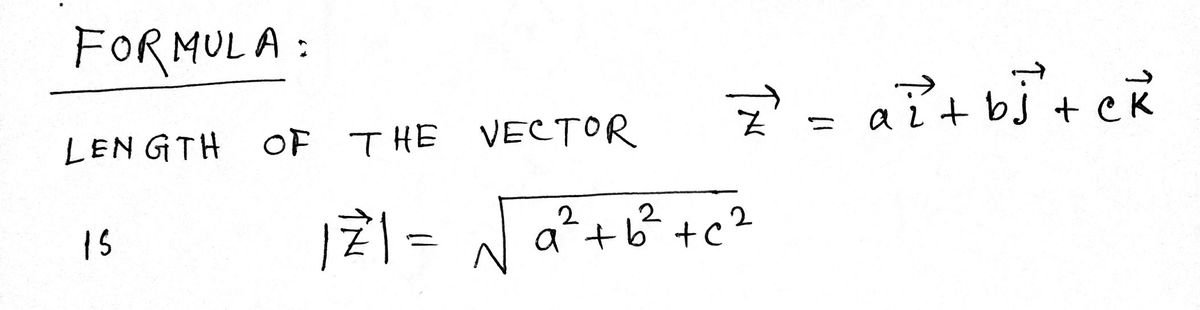 FORMULA:
LENGTH OF THE VECTOR $\vec{z} = a\vec{i} + b\vec{j} + c\vec{k}$
IS $|\vec{z}| = \sqrt{a^2 + b^2 + c^2}$